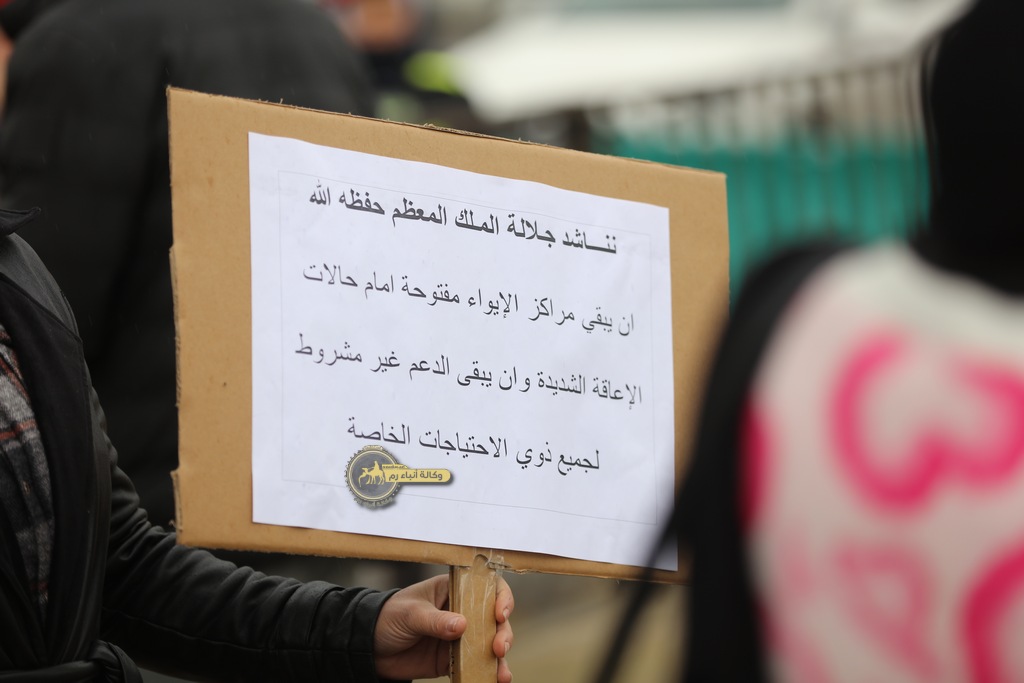 ننـــاشد جـلالة الملك المعظم حفظه الله
ان يبقي مراكز الإيواء مفتوحة امام حالات
الإعاقة الشديدة وان يبقى الدعم غير مشروط
لجميع ذوي الاحتياجات الخاصة
وكالة أنباء رم